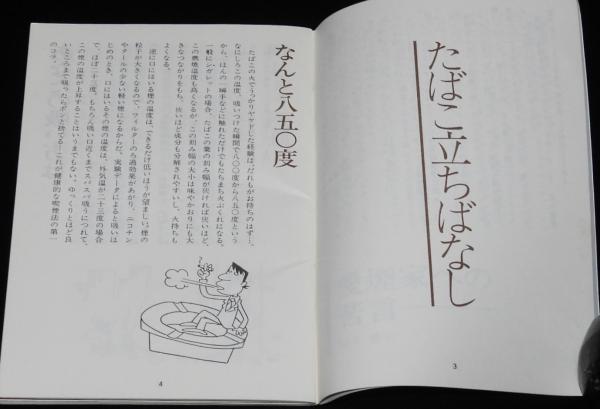 たばこ立ちばなし
3
なんと八五〇度
たばこの火でうっかりヤケドした経験は、だれもがお持ちのはず…。
なにしろこの温度、吸いつけた瞬間で八〇〇度から八五〇度という
から、ほんの一瞬手などに触れただけでもたちまち火ぶくれになる。
一般にシガレットの場合、たばこの葉の刻み幅が狭ければ狭いほど、
この燃焼温度も高くなるが、この刻み幅の大小は味やかおりにも大
きなつながりをもち、狭いほど成分も分解されやすいし、火持ちも
よくなる。
逆に口にはいる煙の温度は、できるだけ低いほうが望ましい。煙の
粒子が大きくなるので、フィルターのろ過効果があがり、ニコチン
やタールの少ない軽い煙になるからだ。実験データによると吸いは
じめのとき、口にはいるその煙の温度は、外気温が二十三度の場合
で、ほぼ二十三度。もちろん吸い口近くまでスパスパ吸うにつれて、
この煙の温度が上昇することはいうまでもない。ゆっくりとほど良
いところまで吸ったらポンと捨てる―これが健康的な喫煙法の第一
のコツ。
4